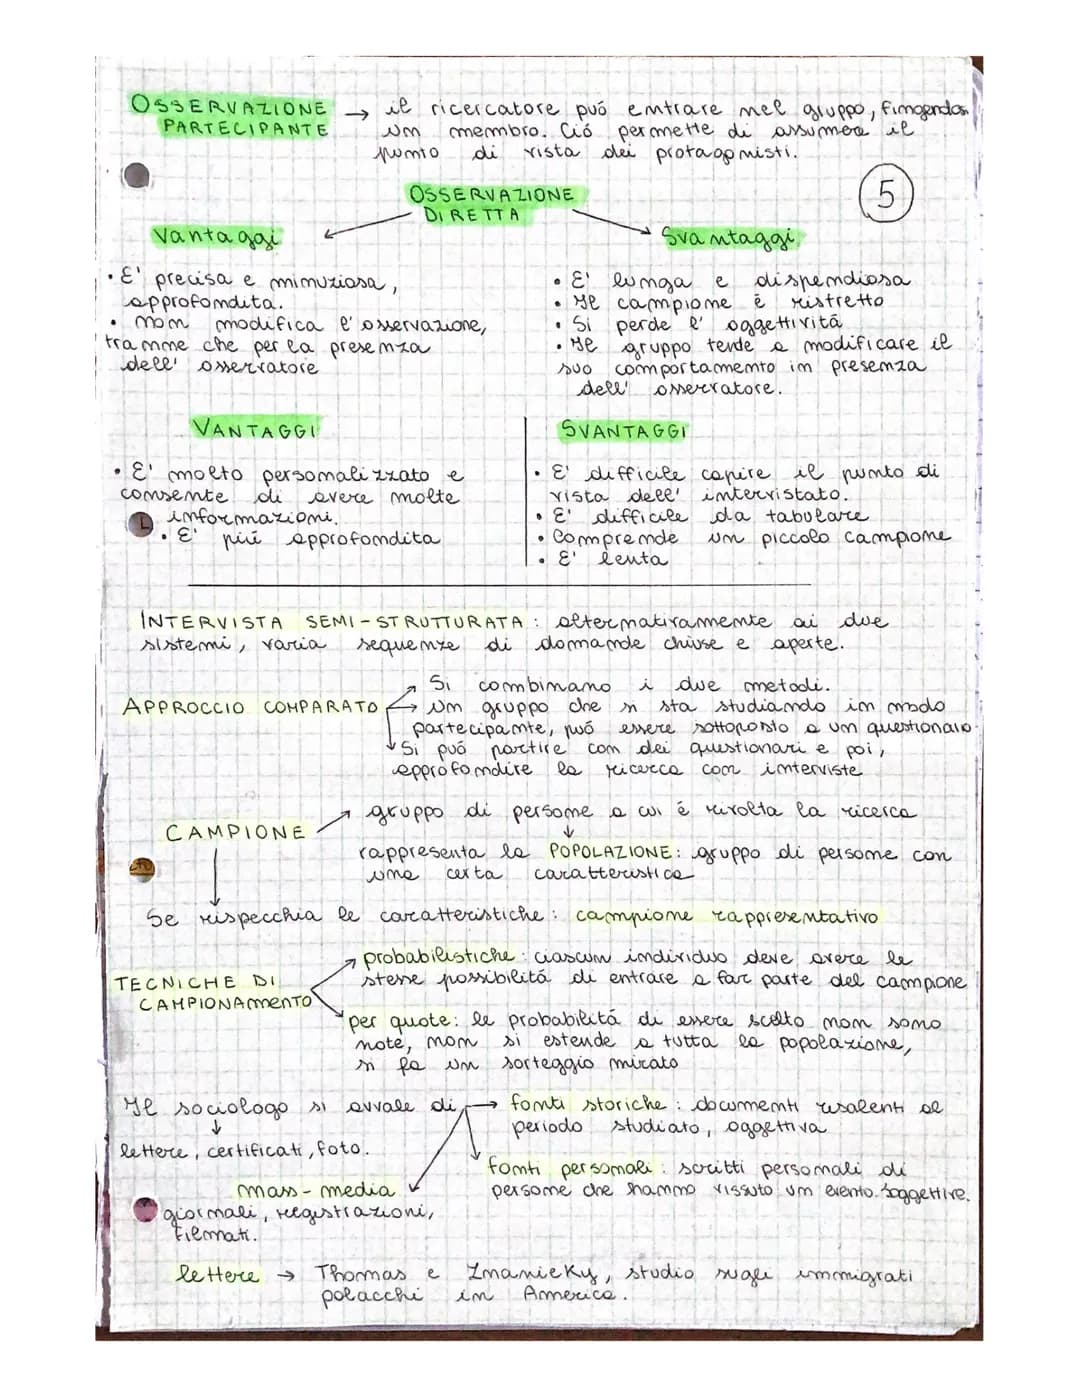 OSSERVAZIONE → il ricercatore può entrare nel gruppo, fingendosi
PARTECIPANTE un membro. Ció permette di assumere il
punto di vista dei protagonisti.
5
OSSERVAZIONE
DIRETTA
Vantaggi
• E' precisa e minuziosa,
approfondita.
• non modifica l'osservazione,
tranne che per la presenza
dell' osservatore
Svantaggi
• E' lunga e dispendiosa
• Il campione é ristretto
• Si perde l' oggettivitá
• Il gruppo tende a modificare il
suo comportamento in presenza
dell' osservatore.
VANTAGGI
• E' molto personalizzato e
consente di avere molte
informazioni.
• E' piú approfondita
SVANTAGGI
• E' difficile capire il punto di
vista dell' intervistato.
• E' difficile da tabulare
• Comprende un piccolo campione
• E' lenta
INTERVISTA SEMI-STRUTTURATA: alternativamente ai due
sistemi, varia sequenze di domande chiuse e aperte.
APPROCCIO COMPARATO
Si combinano i due metodi.
un gruppo che si sta studiando in modo
partecipante, puó essere sottoposto a un questionario.
Si puó partire con dei questionari e poi,
approfondire la ricerca con interviste
CAMPIONE
gruppo di persone a cui é rivolta la ricerca
rappresenta la POPOLAZIONE: gruppo di persone con
una certa caratteristica
Se rispecchia le caratteristiche: campione rappresentativo
TECNICHE DI
CAMPIONAMENTO
probabilistiche: ciascun individuo deve avere le
stesse possibilitá di entrare a far parte del campione
per quote: le probabilitá di essere scelto non sono
note, non si estende a tutta la popolazione,
si fa un sorteggio mirato
Il sociologo si avvale di
lettere, certificati, foto.
fonti storiche: documenti risalenti al
periodo studiato, oggettiva
fonti personali: scritti personali di
persone che hanno vissuto un evento. Soggettive.
mass-media
giornali, registrazioni,
filmati.
lettere → Thomas e Znaniecky, studio sugli immigrati
polacchi in America.